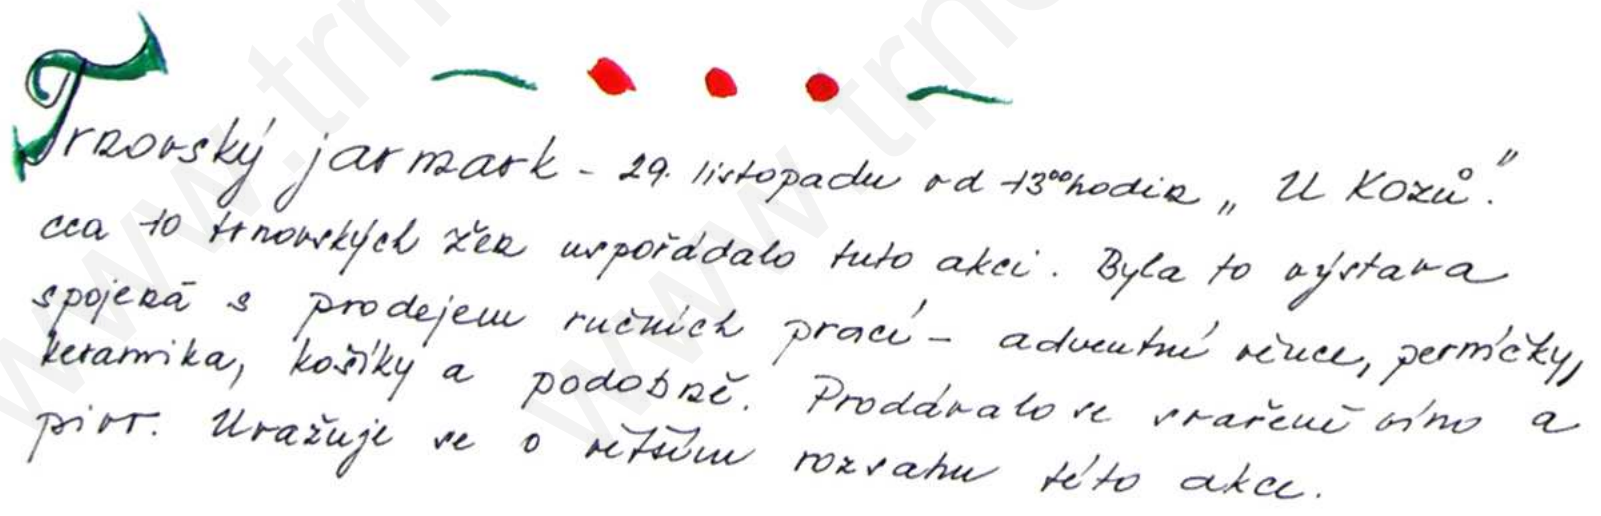 Trnovský jarmark - 29. listopadu od 13⁰⁰ hodin „U Kozů".
cca 10 trnovských žen uspořádalo tuto akci. Byla to výstava
spojená s prodejem ručních prací - adventní věnce, perníčky,
keramika, košíky a podobně. Prodávalo se svařené víno a
pivo. Uvažuje se o větším rozsahu této akce.